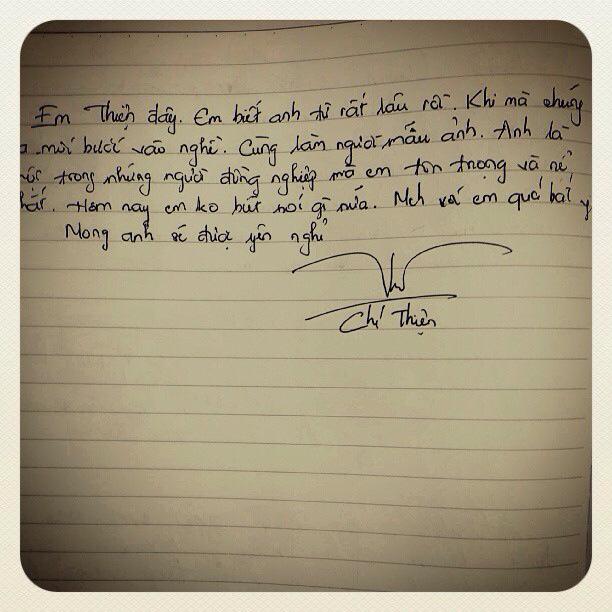 Em Thiện đây. Em biết anh từ rất lâu rồi. Khi mà chúng
mới bước vào nghề. Cùng làm người mẫu ảnh. Anh là
trong những người đồng nghiệp mà em tôn trọng và nể
Hôm nay em ko biết nói gì nữa. Mch với em quá bất
Mong anh sẽ được yên nghỉ
Chí Thiện